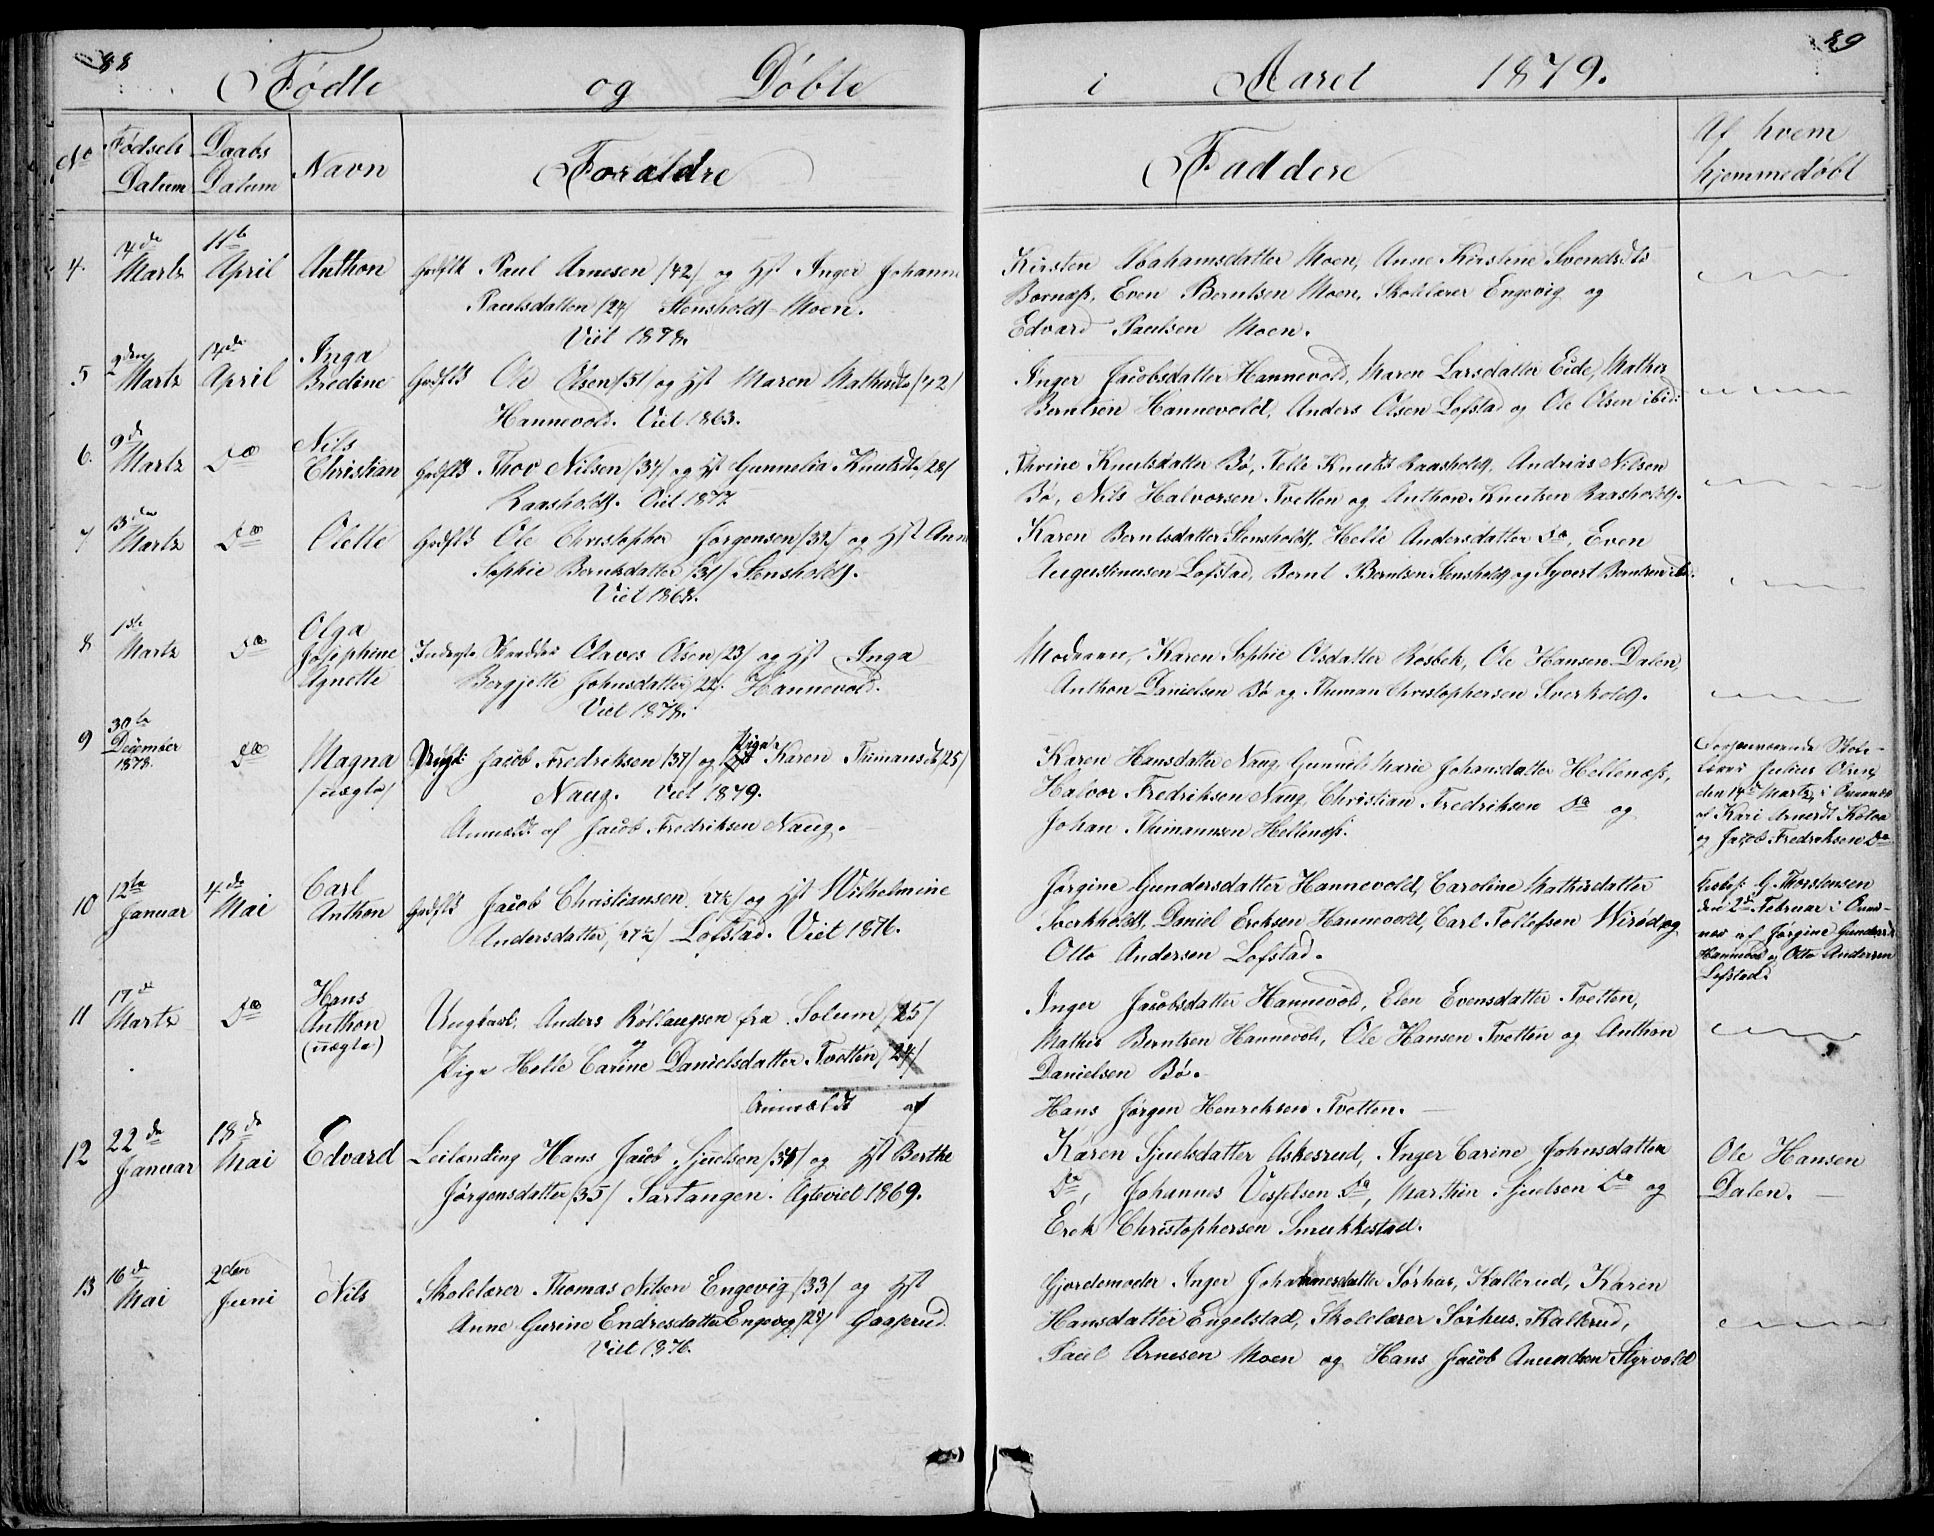 88
89
Fødte og Døbte i Aaret 1879.
No Fødsels Datum Daabs Datum Navn Forældre Faddere Af hvem hjemmedøbt
4. 4de Martz 11te April Anthon Gadflk Paul Arnesen /42/ og Hst Inger Johann
Paulsdatter /24/ Stensholdt-Moen.
Viet 1878.
Kirsten Abrahamsdatter Moen, Anne Kirstine Svendsdts
Bornæss, Even Berntsen Moen, Skolelærer Engevig og
Edvard Paulsen Moen.
5 2den Martz 14de April Inga Bredine Gadflk Ole Olsen /51/ og Hst Maren Mathisdtr /42/
Hannevold. Viet 1863.
Inger Jacobsdatter Hannevold, Maren Larsdatter Eide, Mathis
Berntsen Hannevold, Anders Olsen Lofstad og Ole Olsen ibid:
6. 9de Martz Do Nils Christian Gadflk Thov Nilsen /34/ og Hst Gunnelia Knutsdtr /28/
Raasholdt. Viet 1877
Thrine Knutsdatter Bø, Telle Knutsdt Raasholdt, Andrias Nilsen
Bø, Nils Halvorsen Tvetten og Anthon Knutsen Raasholdt.
7 13de Martz Do Olette Gadflk Ole Christopher Jørgensen /32/ og Hst Ann
Sophie Berntsdatter /31/ Stensholdt.
Viet 1868.
Karen Berntsdatter Stensholdt, Helle Andersdatter Do, Even
Augustinusen Lofstad, Bernt Berntsen Stensholdt og Syvert Berntsen ibd.
8 1ste Martz Do Olga Josephine Agnette Inderste Skrædder Olaves Olsen /23/ og Hst Inga
Bergjette Johnsdatter /22/. Hannevold.
Viet 1878.
Moderen, Karen Sophie Olsdatter Røsbek, Ole Hansen Dalen,
Anthon Danielsen Bø og Thuman Christophersen Sverholdt.
9 30te December 1878. Do Magna /uægte/ Ungk: Jacob Fredriksen /37/ og Pige Karen Thimansdt /25/
Naug. Viet 1879.
Anmeldt af Jacob Fredriksen Naug.
Karen Hansdatter Naug, Gunnild Marie Johansdatter Hellenæss,
Halvor Fredriksen Naug, Christian Fredriksen Do og
Johan Thimannsen Hellenæss.
Forhenværende Skole-
lærer Julius Olsen
den 14de Martz, i Overvær
af Kari Arnesdt Kolaa
og Jacob Fredriksen Do
10 12te Januar 4de Mai Carl Anthon Gadflk Jacob Christiansen /27½/ og Hst Wilhelmine
Andersdatter, /27½/ Lofstad. Viet 1876.
Jørgine Gundersdatter Hannevold, Caroline Mathisdatter
Sverkholdt, Daniel Ereksen Hannevold, Carl Tollefsen Wirød og
Otto Andersen Lofstad.
G. Thorstensen
den 2de Februar i Over-
vær af Jørgine Gundersdt
Hannevold og Otto Andersen
Lofstad.
11 17de Martz Do Hans Anthon (uægte) Ungkarl, Anders Rollaugsen fra Solum /25/
Pige Helle Carine Danielsdatter Tvetten /24/
Anmeldt af
Inger Jacobsdatter Hannevold, Elen Evensdatter Tvetten,
Mathis Berntsen Hannevold, Ole Hansen Tvetten og Anthon
Danielsen Bø.
Hans Jørgen Henriksen Tvetten.
12 22de Januar 18de Mai Edvard Leilending Hans Jacob Sjuelsen /38/ og Hst Berthe
Jørgensdatter /35/ Sartangen. Ægteviet 1869.
Karen Sjuelsdatter Askesrud, Inger Carine Johnsdatter
Do, Johannes Vesselsen Do, Marthin Sjuelsen Do og
Erek Christophersen Smukkestad.
Ole Hansen
Dalen.
13 16de Mai 2den Juni Nils Skolelærer Thomas Nilsen Engevig /33/ og Hst
Anne Gurine Endresdatter Engevig /28/ Gaaserud.
Viet 1876.
Gjordemoder Inger Johannesdatter Sørhus, Kallerud, Karen
Hansdatter Engelstad, Skolelærer Sørhus, Kallerud,
Paul Arnesen Moen og Hans Jacob Anundsen Styrvold